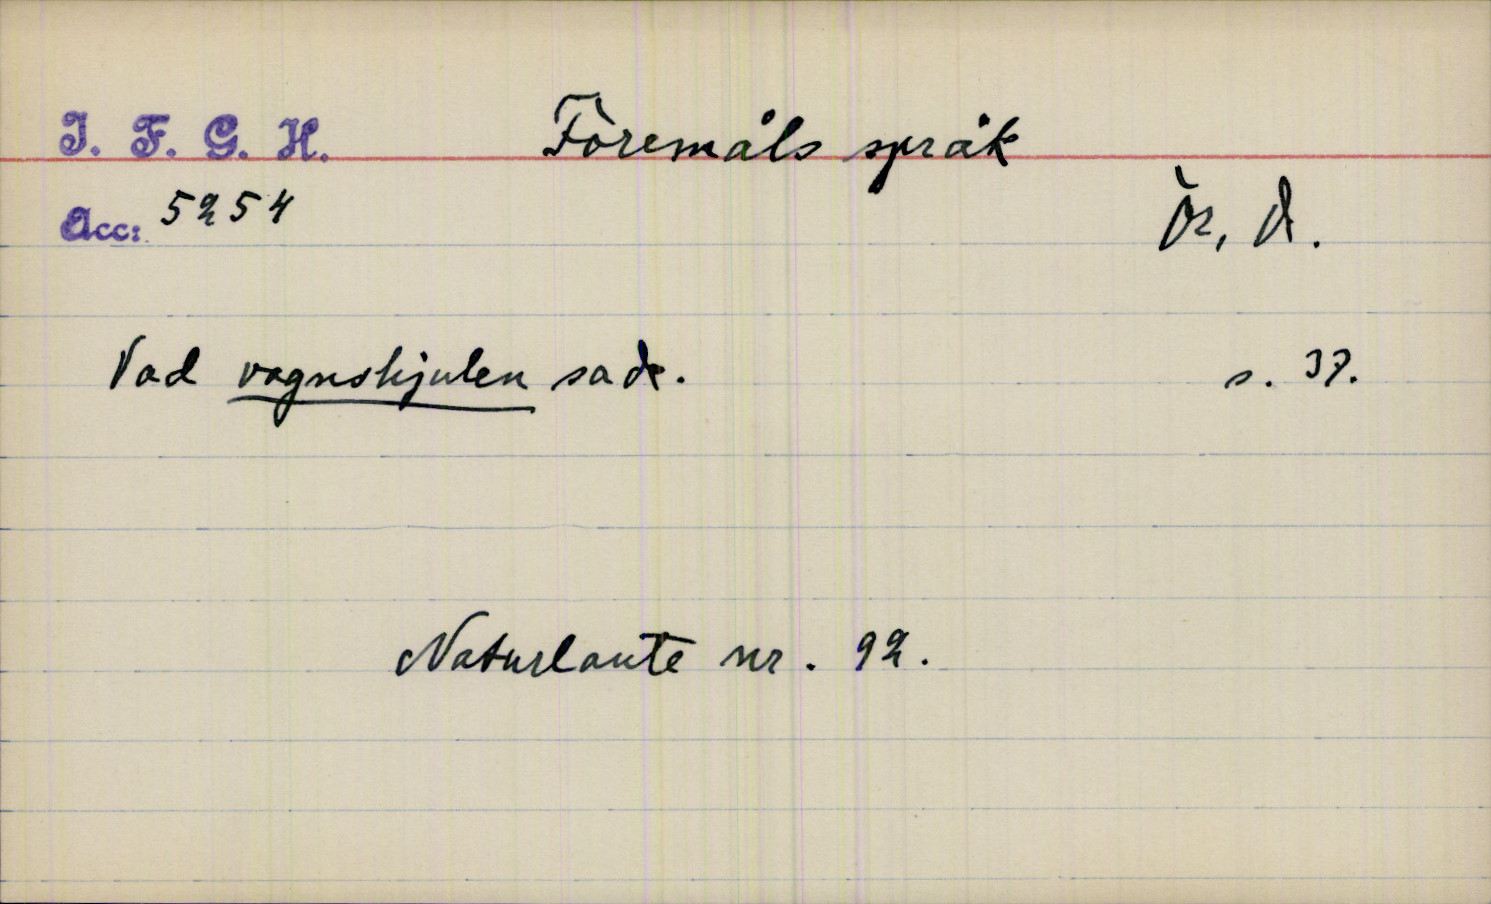 I. F. G. H.
Föremåls språk
Acc: 5254
Ör, D.
Vad vagnshjulen sade. s. 37.
Naturlaute nr. 92.